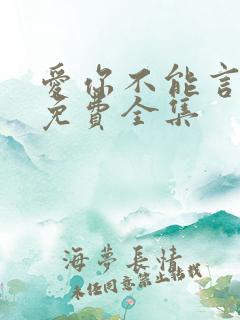 愛你不能言
免費全集
海夢長情
未經同意禁止轉載